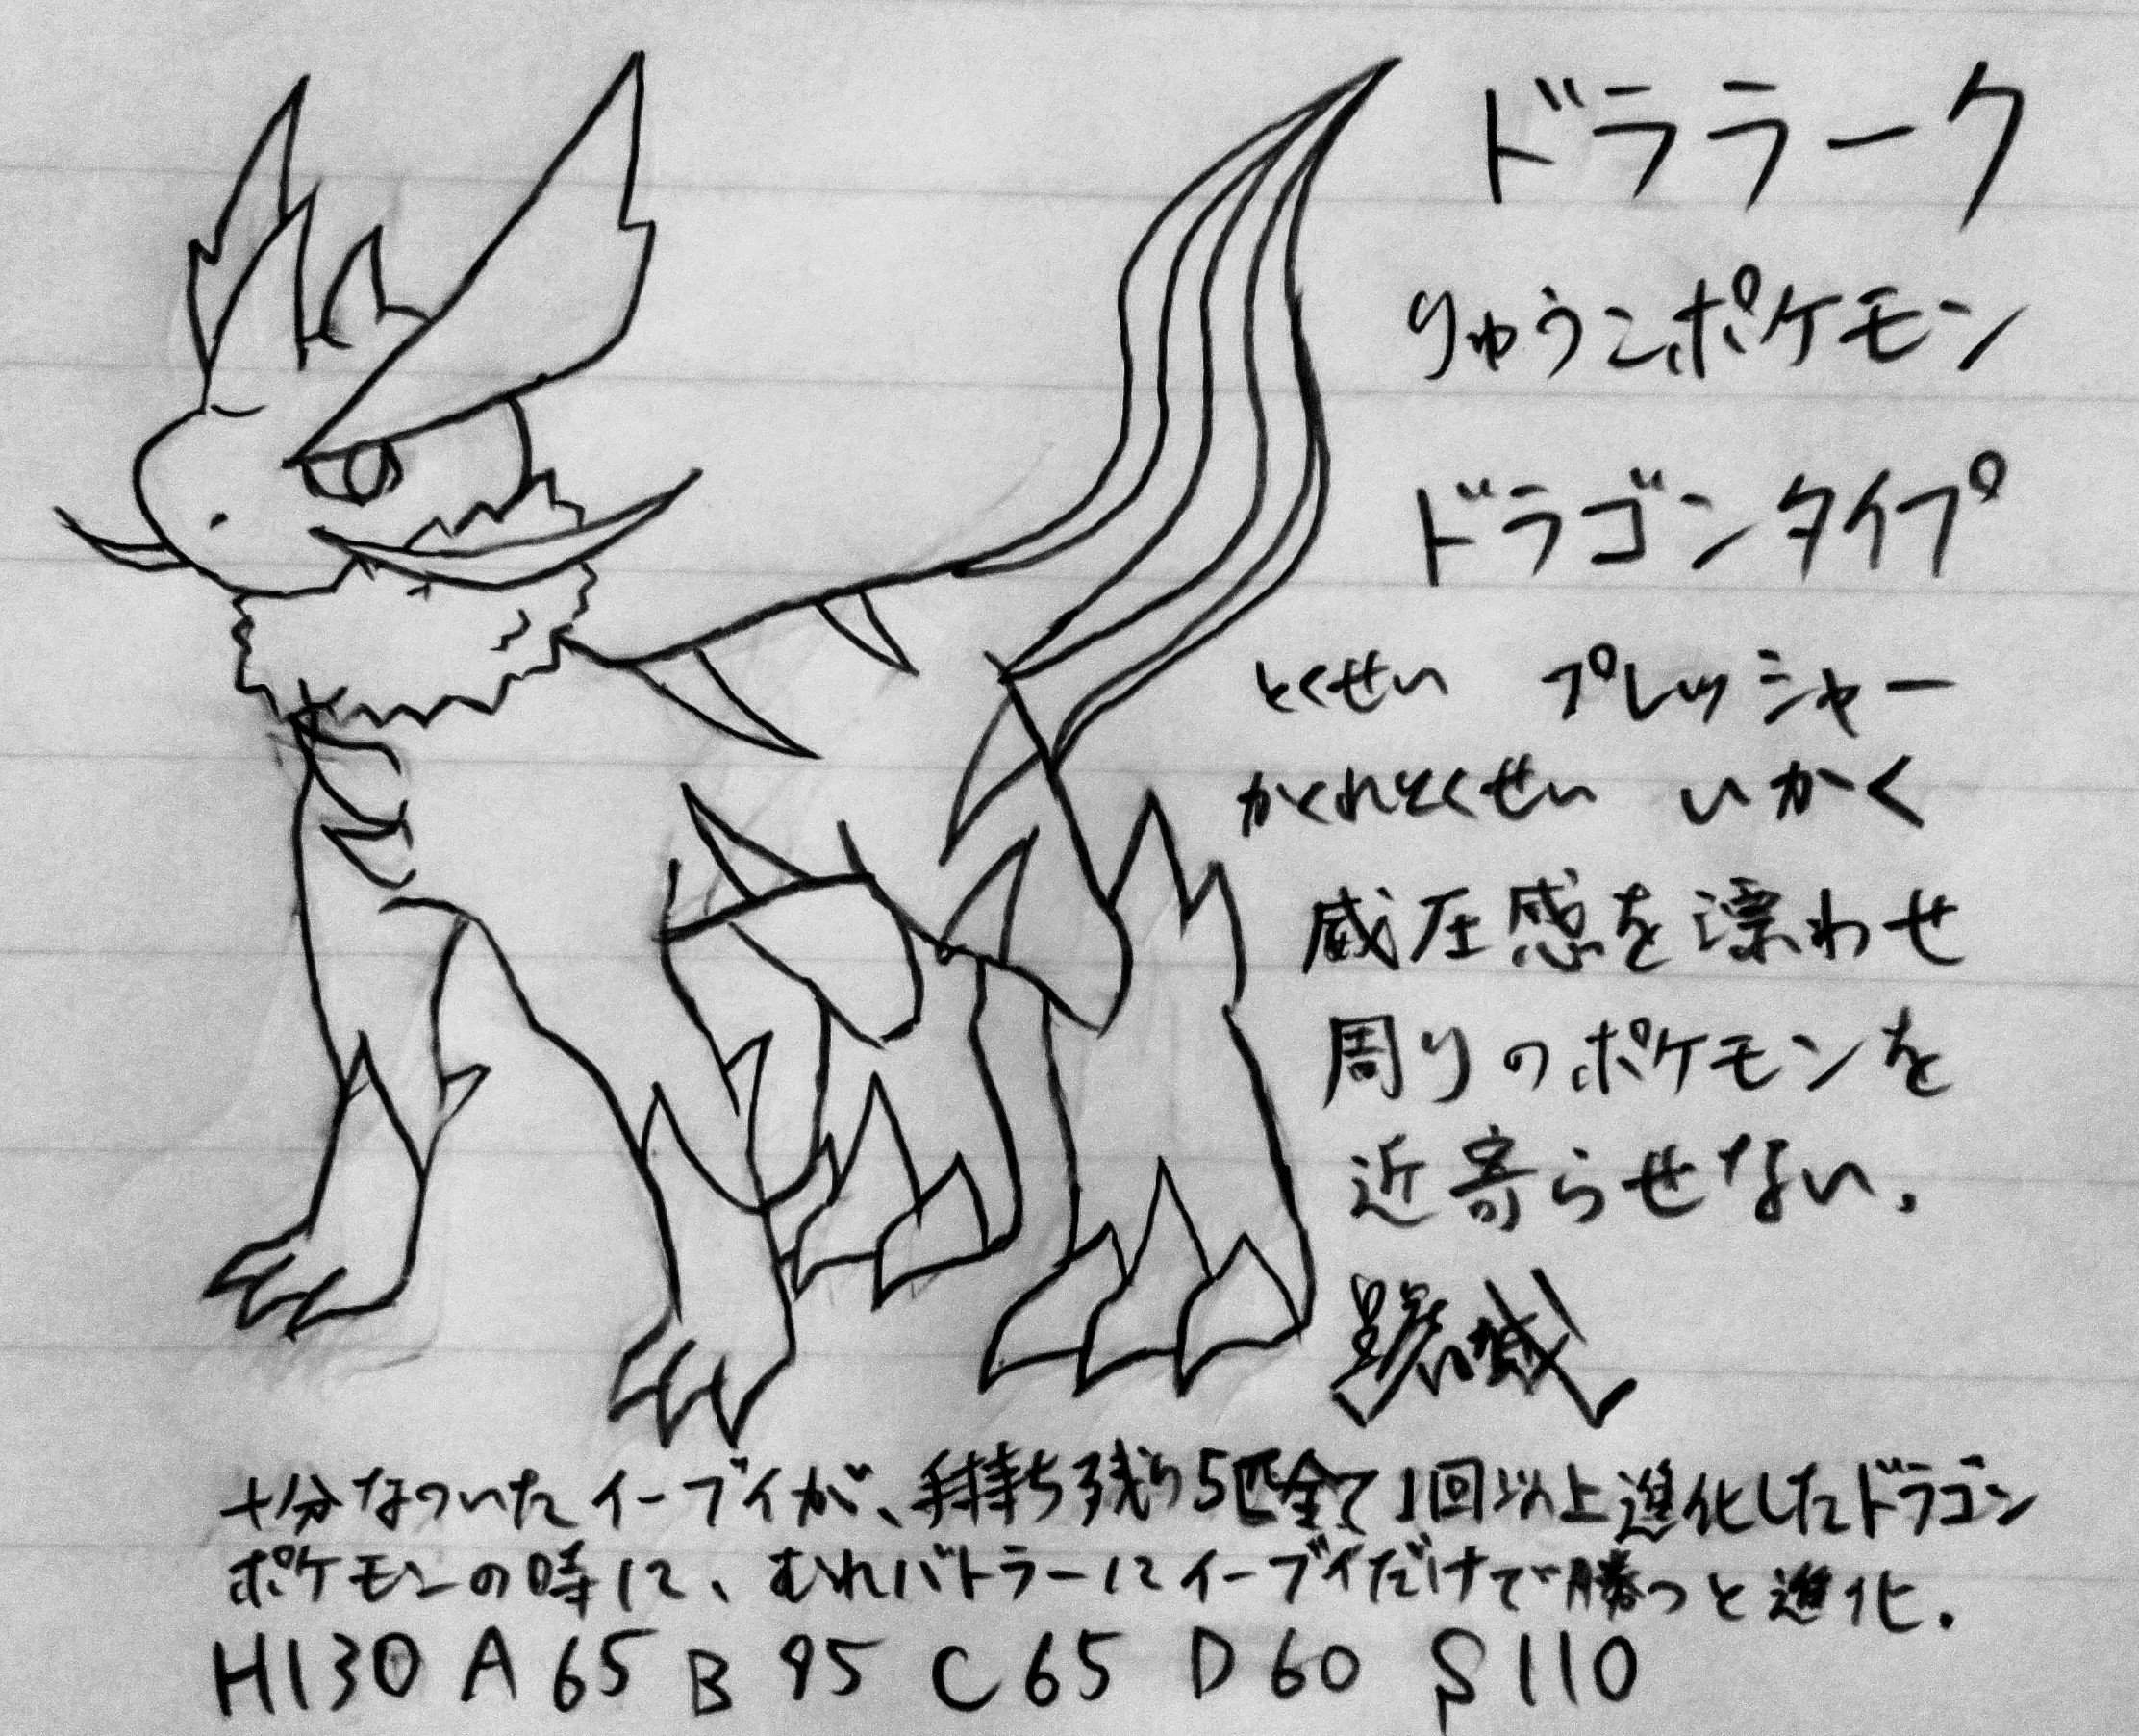 ドララーク
りゅうこポケモン
ドラゴンタイプ
とくせい プレッシャー
かくれとくせい いかく
威圧感を漂わせ
周りのポケモンを
近寄らせない。
十分なついたイーブイが、手持ち残り5匹全て1回以上進化したドラゴン
ポケモンの時に、むれバトラーにイーブイだけで勝つと進化.
H130 A65 B95 C65 D60 S110